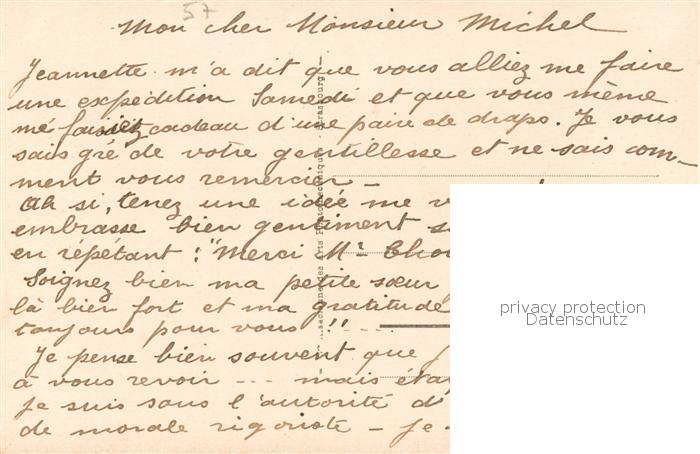 57
Mon cher Monsieur Michel
Jeannette m'a dit que vous alliez me faire
une expédition Samedi et que vous même
me faisiez cadeau d'une paire de draps. Je vous
sais gré de votre gentillesse et ne sais com-
ment vous remercier -
Ah si, tenez une idée me v
embrasse bien gentiment s
en répétant : "Merci Mr
Soignez bien ma petite sœur
là bien fort et ma gratitude
toujours pour vous !! - ...
Je pense bien souvent que
à vous revoir --- mais
je suis sous l'autorité d'
de morale rigoriste - je
privacy protection
Datenschutz